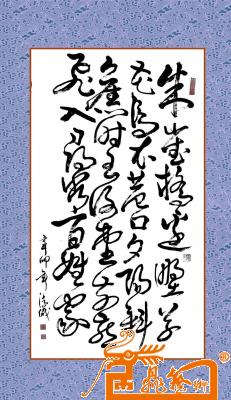 朱雀橋邊野草
花烏衣巷口夕陽斜
舊時王謝堂前燕
飛入尋常百姓家
辛卯年